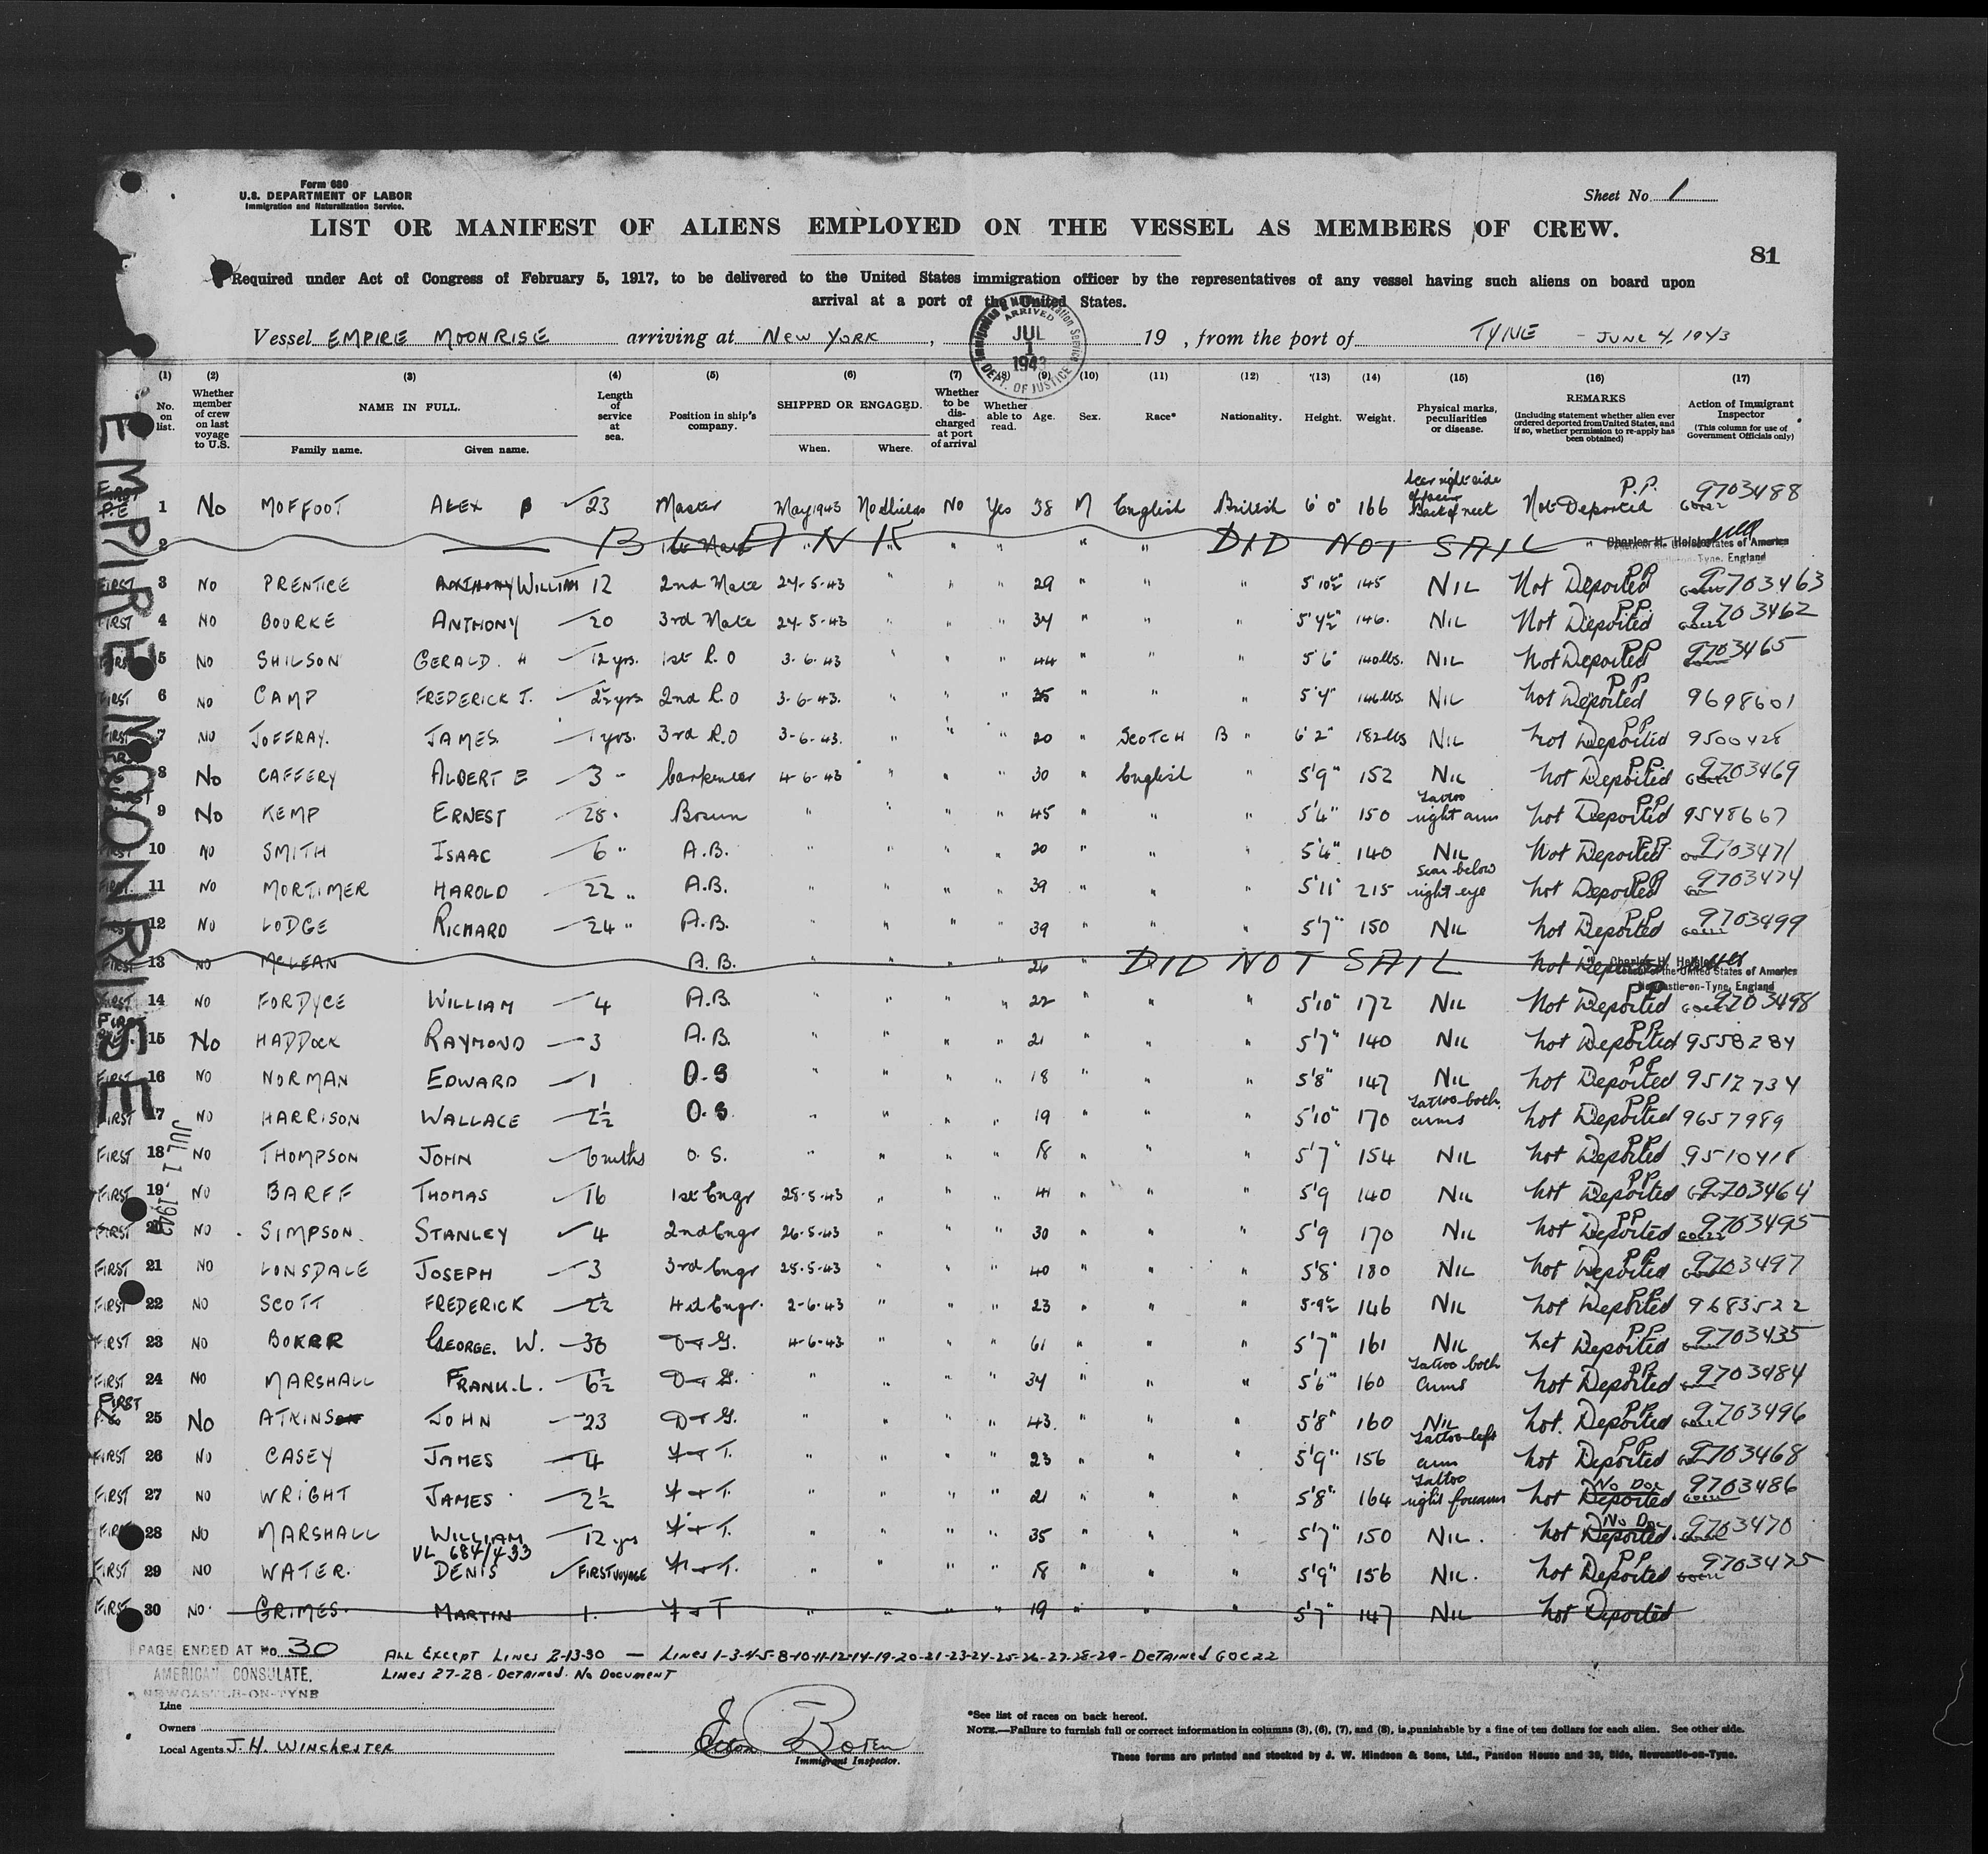 Form 680
U.S. DEPARTMENT OF LABOR
Immigration and Naturalization Service.
Sheet No. 1
LIST OR MANIFEST OF ALIENS EMPLOYED ON THE VESSEL AS MEMBERS OF CREW.
81
Required under Act of Congress of February 5, 1917, to be delivered to the United States immigration officer by the representatives of any vessel having such aliens on board upon
arrival at a port of the United States.
Vessel EMPIRE MOONRISE arriving at NEW YORK, 19 , from the port of TYNE - JUNE 4, 1943
ARRIVED JUL 1 1943 DEPT. OF JUSTICE
EMPIRE MOONRISE
JUL 1 1943
(1) (2) (3) (4) (5) (6) (7) (8) (9) (10) (11) (12) (13) (14) (15) (16) (17)
No. on list. Whether member of crew on last voyage to U.S. NAME IN FULL. Family name. Given name. Length of service at sea. Position in ship's company. SHIPPED OR ENGAGED. When. Where. Whether to be discharged at port of arrival Whether able to read. Age. Sex. Race* Nationality. Height. Weight. Physical marks, peculiarities or disease. REMARKS (Including statement whether alien ever ordered deported from United States, and if so, whether permission to re-apply has been obtained) Action of Immigrant Inspector (This column for use of Government Officials only)
FIRST P.E 1 No MOFFOOT ALEX 23 Master May 1943 No Yes 38 M English British 6'0" 166 Scar right side Back of neck Not Deported P.P. 9703488
2 BLANK 1st Mate " " " " " DID NOT SAIL " Charles H. of the United States of America -Tyne, England
FIRST 3 NO PRENTICE ANTHONY WILLIAM 12 2nd Mate 24-5-43 " " " 29 " " " 5'10½" 145 NIL Not Deported PP 9703463
FIRST 4 NO BOURKE ANTHONY 20 3rd Mate 24-5-43 " " " 34 " " " 5'4½" 146. NIL Not Deported P.P. 9703462
FIRST 5 NO SHILSON GERALD. H 12 yrs. 1st R.O 3-6-43 " " " 44 " " " 5'6" 140lbs. NIL Not Deported PP 9703465
FIRST 6 NO CAMP FREDERICK J. 2½ yrs 2nd R.O 3-6-43. " " " 35 " " " 5'4" 146lbs. NIL not Deported PP 9698601
FIRST 7 NO JOFFRAY. JAMES. 1 yrs. 3rd R.O 3-6-43. " " " 20 " SCOTCH B " 6'2" 182lbs NIL not Deported PP 9500428
8 No CAFFERY ALBERT E 3 " Carpenter 4-6-43 " " " 30 " English " 5'9" 152 NIL not Deported P.P. 9703469
9 No KEMP ERNEST 28 " Bosun " " " " 45 " " " 5'4" 150 Tattoo right arm not Deported PP 9548667
10 NO SMITH ISAAC 6 " A.B. " " " " 20 " " " 5'4" 140 NIL Not Deported P.P. 9703471
FIRST 11 NO MORTIMER HAROLD 22 " A.B. " " " " 39 " " " 5'11" 215 Scar below right eye not Deported PP 9703474
12 NO LODGE RICHARD 24 " A.B. " " " " 39 " " " 5'7" 150 NIL not Deported PP 9703499
FIRST 13 NO McLEAN A.B. " " " " 26 DID NOT SAIL not Deported Charles H. of the United States of America Newcastle-on-Tyne, England
FIRST 14 NO FORDYCE WILLIAM 4 A.B. " " " " 22 " " " 5'10" 172 NIL Not Deported PP 9703498
FIRST 15 No HADDOCK RAYMOND 3 A.B. " " " " 21 " " " 5'7" 140 NIL not Deported PP 9558284
FIRST 16 NO NORMAN EDWARD 1 O.S " " " " 18 " " " 5'8" 147 NIL not Deported PP 9512734
FIRST 17 NO HARRISON WALLACE 2½ O.S. " " " " 19 " " " 5'10" 170 Tattoo both arms not Deported 9657989
FIRST 18 NO THOMPSON JOHN 6 mths O.S. " " " " 18 " " " 5'7" 154 NIL not Deported PP
FIRST 19 NO BARFF THOMAS 16 1st Engr 28-5-43 " " " 41 " " " 5'9 140 NIL not Deported P.P. 9703464
FIRST 20 NO SIMPSON. STANLEY 4 2nd Engr 26-5-43 " " " 30 " " " 5'9 170 NIL not Deported PP 9703495
FIRST 21 NO LONSDALE JOSEPH 3 3rd Engr 25-5-43 " " " 40 " " " 5'8" 180 NIL not Deported PP 9703497
FIRST 22 NO SCOTT FREDERICK 2½ 4th Engr. 2-6-43 " " " 23 " " " 5-9½ 146 NIL not Deported PP 9683522
FIRST 23 NO GEORGE. W. 30 D+G. 4-6-43 " " " 61 " " " 5'7" 161 NIL not Deported P.P. 9703435
FIRST 24 NO MARSHALL FRANK. L. 6½ D+G. " " " " 34 " " " 5'6" 160 Tattoo both arms not Deported PP 9703484
FIRST 25 No ATKINSON JOHN 23 D+G. " " " " 43. " " " 5'8" 160 NIL not. Deported PP 9703496
FIRST 26 NO CASEY JAMES 4 F+T. " " " " 23 " " " 5'9" 156 Tattoo left arm not Deported PP 9703468
FIRST 27 NO WRIGHT JAMES 2½ F+T. " " " " 21 " " " 5'8" 164 Tattoo right forearm not Deported No Doc 9703486
FIRST 28 NO MARSHALL WILLIAM 12 yrs F+T. " " " " 35 " " " 5'7" 150 NIL. not Deported. No Doc 9703470
VL 684/433
FIRST 29 NO WATER. DENIS FIRST VOYAGE F+T. " " " " 18 " " " 5'9" 156 NIL. not Deported PP 9703475
FIRST 30 NO. GRIMES. MARTIN 1. F+T " " " " 19 " " " 5'7" 147 NIL not Deported
PAGE ENDED AT No. 30 ALL EXCEPT LINES 2-13-30 — LINES 1-3-4-5-8-10-11-12-14-19-20-21-23-24-25-26-27-28-29- DETAINED GOC22
AMERICAN CONSULATE, LINES 27-28 - DETAINED. NO DOCUMENT
NEWCASTLE-ON-TYNE
Line
Owners
Local Agents J. H. WINCHESTER
Immigrant Inspector.
*See list of races on back hereof.
NOTE.—Failure to furnish full or correct information in columns (3), (6), (7), and (8), is punishable by a fine of ten dollars for each alien. See other side.
These forms are printed and stocked by J. W. Hindson & Sons, Ltd., Pandon House and 39, Side, Newcastle-on-Tyne.